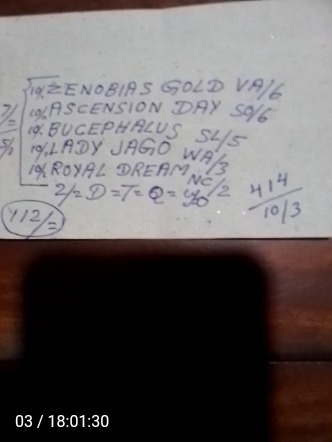 10/. ZENOBIAS GOLD VA/6
10/. ASCENSION DAY SO/6
7/= 10/. BUCEPHALUS SL/5
5/1 10/. LADY JAGO WA/3
10/. ROYAL DREAM NC/2
2/= D = T = Q =
414
10/3
112/=
03 / 18:01:30